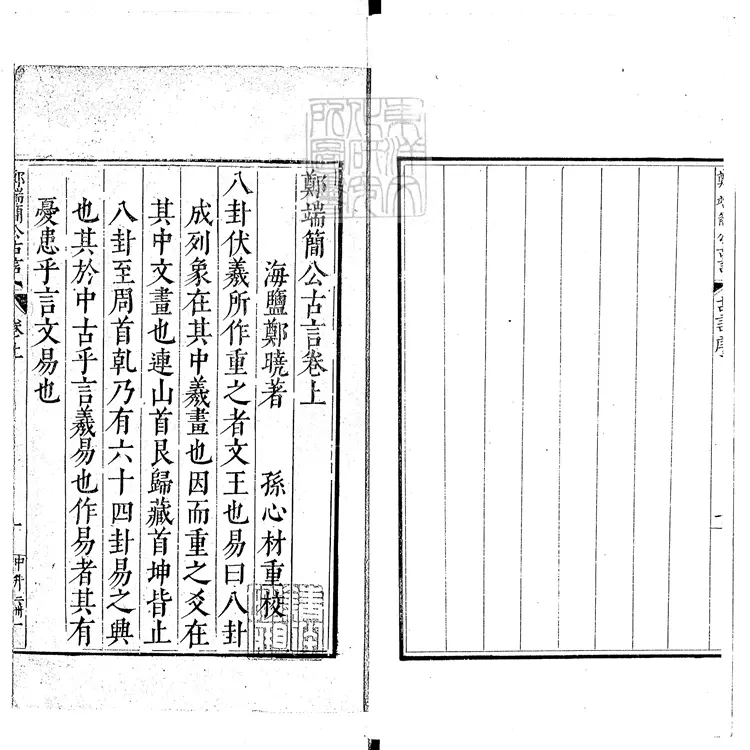 鄭端簡公古言
古言序
二
鄭端簡公古言卷上
海鹽鄭曉著 孫心材重校
八卦伏羲所作重之者文王也易曰八卦
成列象在其中羲畫也因而重之爻在
其中文畫也連山首艮歸藏首坤皆止
八卦至周首乹乃有六十四卦易之興
也其於中古乎言羲易也作易者其有
憂患乎言文易也
鄭端簡公古言
卷上
一